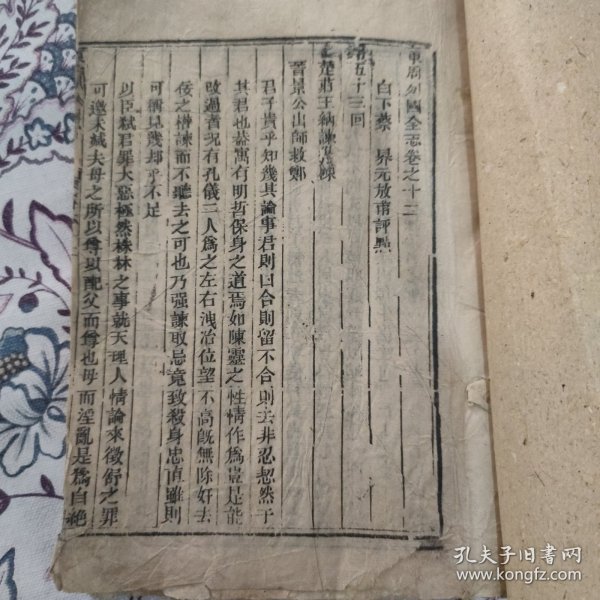 東周列國全志卷之十二
白下蔡 昇元放甫評點
第五十三回
楚莊王納諫復陳
晉景公出師救鄭
君子貴乎知幾其論事君則曰合則留不合則去非忍恝然于
其君也蓋寓有明哲保身之道焉如陳靈之性情作為豈是能
改過者況有孔儀二人為之左右洩冶位望不高旣無除好去
佞之權諫而不聽去之可也乃强諫取忌竟致殺身忠直雖則
可稱見幾却乎不足
以臣弑君罪大惡極然株林之事就天理人情論來徵舒之罪
可邀末減夫母之所以尊以配父而尊也母而淫亂是為自絶
孔夫子旧书网
www.kongfz.com